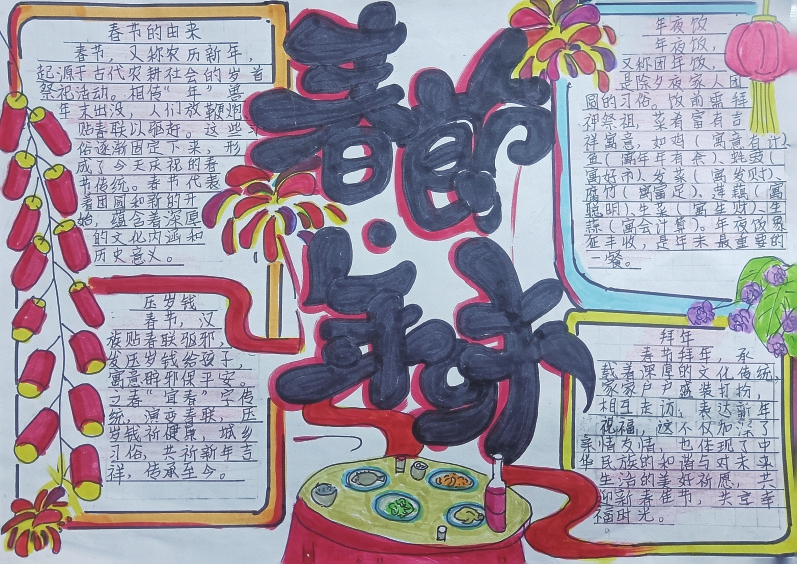 春节·年味
春节的由来
春节，又称农历新年，
起源于古代农耕社会的岁首
祭祀活动。相传“年”兽
年末出没，人们放鞭炮
贴春联以驱赶。这些习
俗逐渐固定下来，形
成了今天庆祝的春
节传统。春节代表
着团圆和新的开
始，蕴含着深厚
的文化内涵和
历史意义。
压岁钱
春节，汉
族贴春联驱邪，
发压岁钱给孩子，
寓意辟邪保平安。
立春“宜春”字传
统，演变春联，压
岁钱祈健康，城乡
习俗，共祈新年吉
祥，传承至今。
年夜饭
年夜饭，
又称团年饭，
是除夕夜家人团
圆的习俗。饭前需拜
神祭祖，菜肴富有吉
祥寓意，如鸡（寓意有计）
鱼（寓年年有余）、蚝豉（
寓好市）、发菜（寓发财）、
腐竹（寓富足）、莲藕（寓
聪明）、生菜（寓生财）、生
蒜（寓会计算）。年夜饭象
征丰收，是年末最重要的
一餐。
拜年
春节拜年，承
载着深厚的文化传统，
家家户户盛装打扮，
相互走访，表达新年
祝福，这不仅加深了
亲情友情，也体现了中
华民族的和谐与对未来
生活的美好祈愿，共
迎新春佳节，共享幸
福时光。